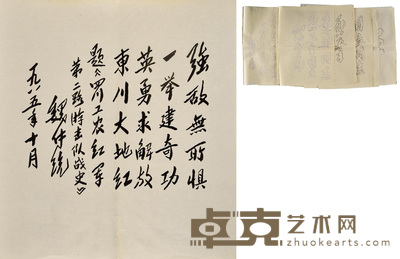 強敌無所惧
一举建奇功
英勇求解放
東川大地红
题《工农红军
第二路游击队战史》
魏传统
一九八五年十月
卓克艺术网
www.zhuokearts.com